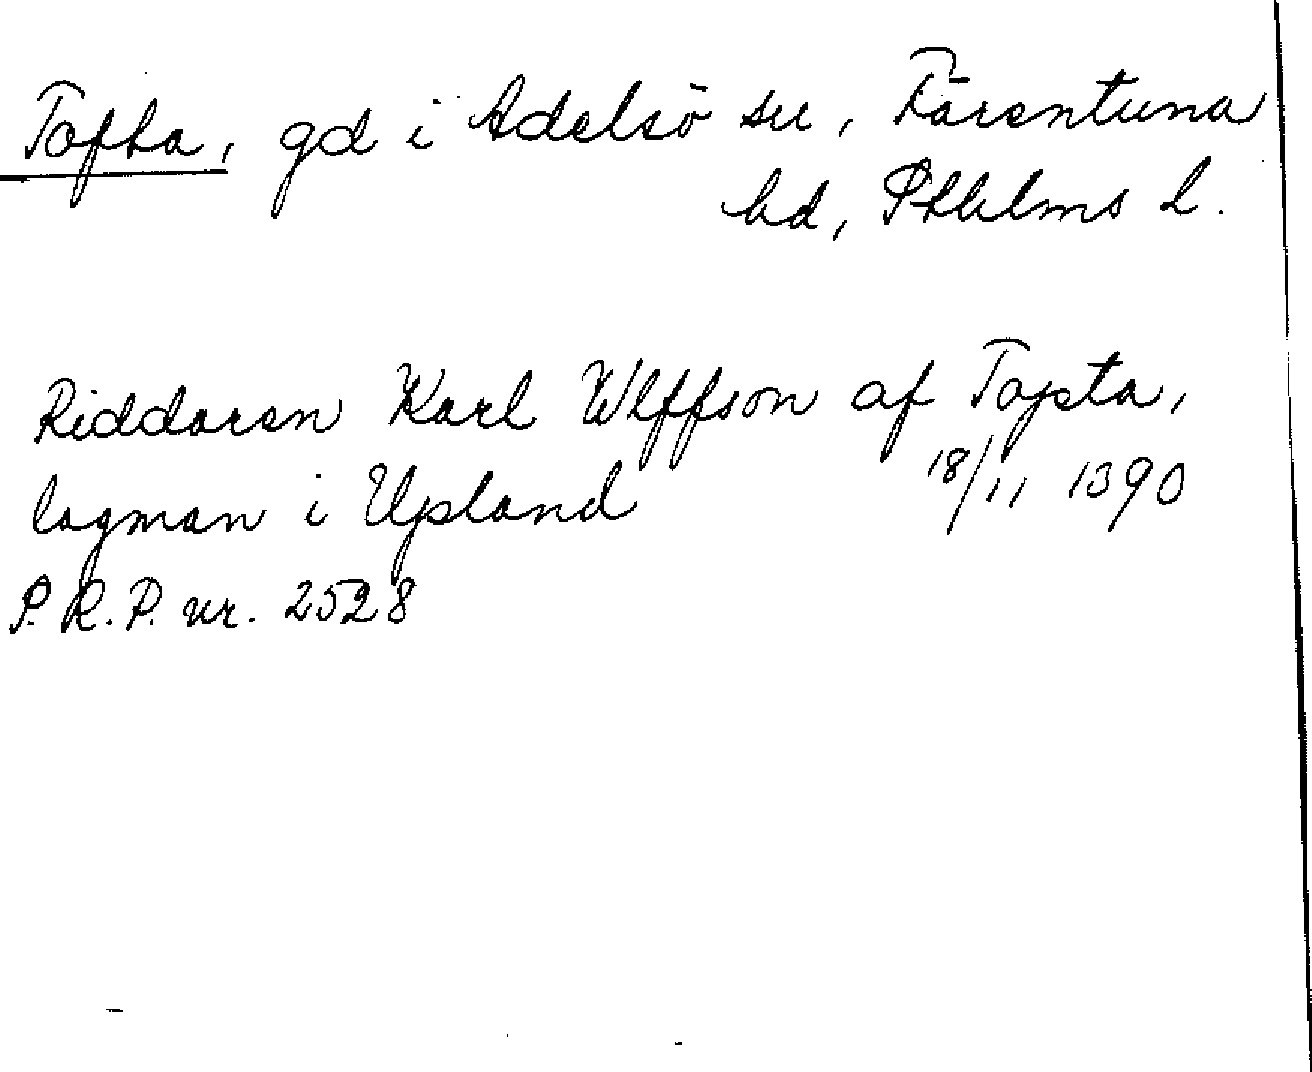 Tofta, gd i Adelsö sn, Färentuna
hd, Sthlms l.
Riddaren Karl Ulffson af Tofsta,
lagman i Upland 18/11 1390
S.R.P. nr. 2528